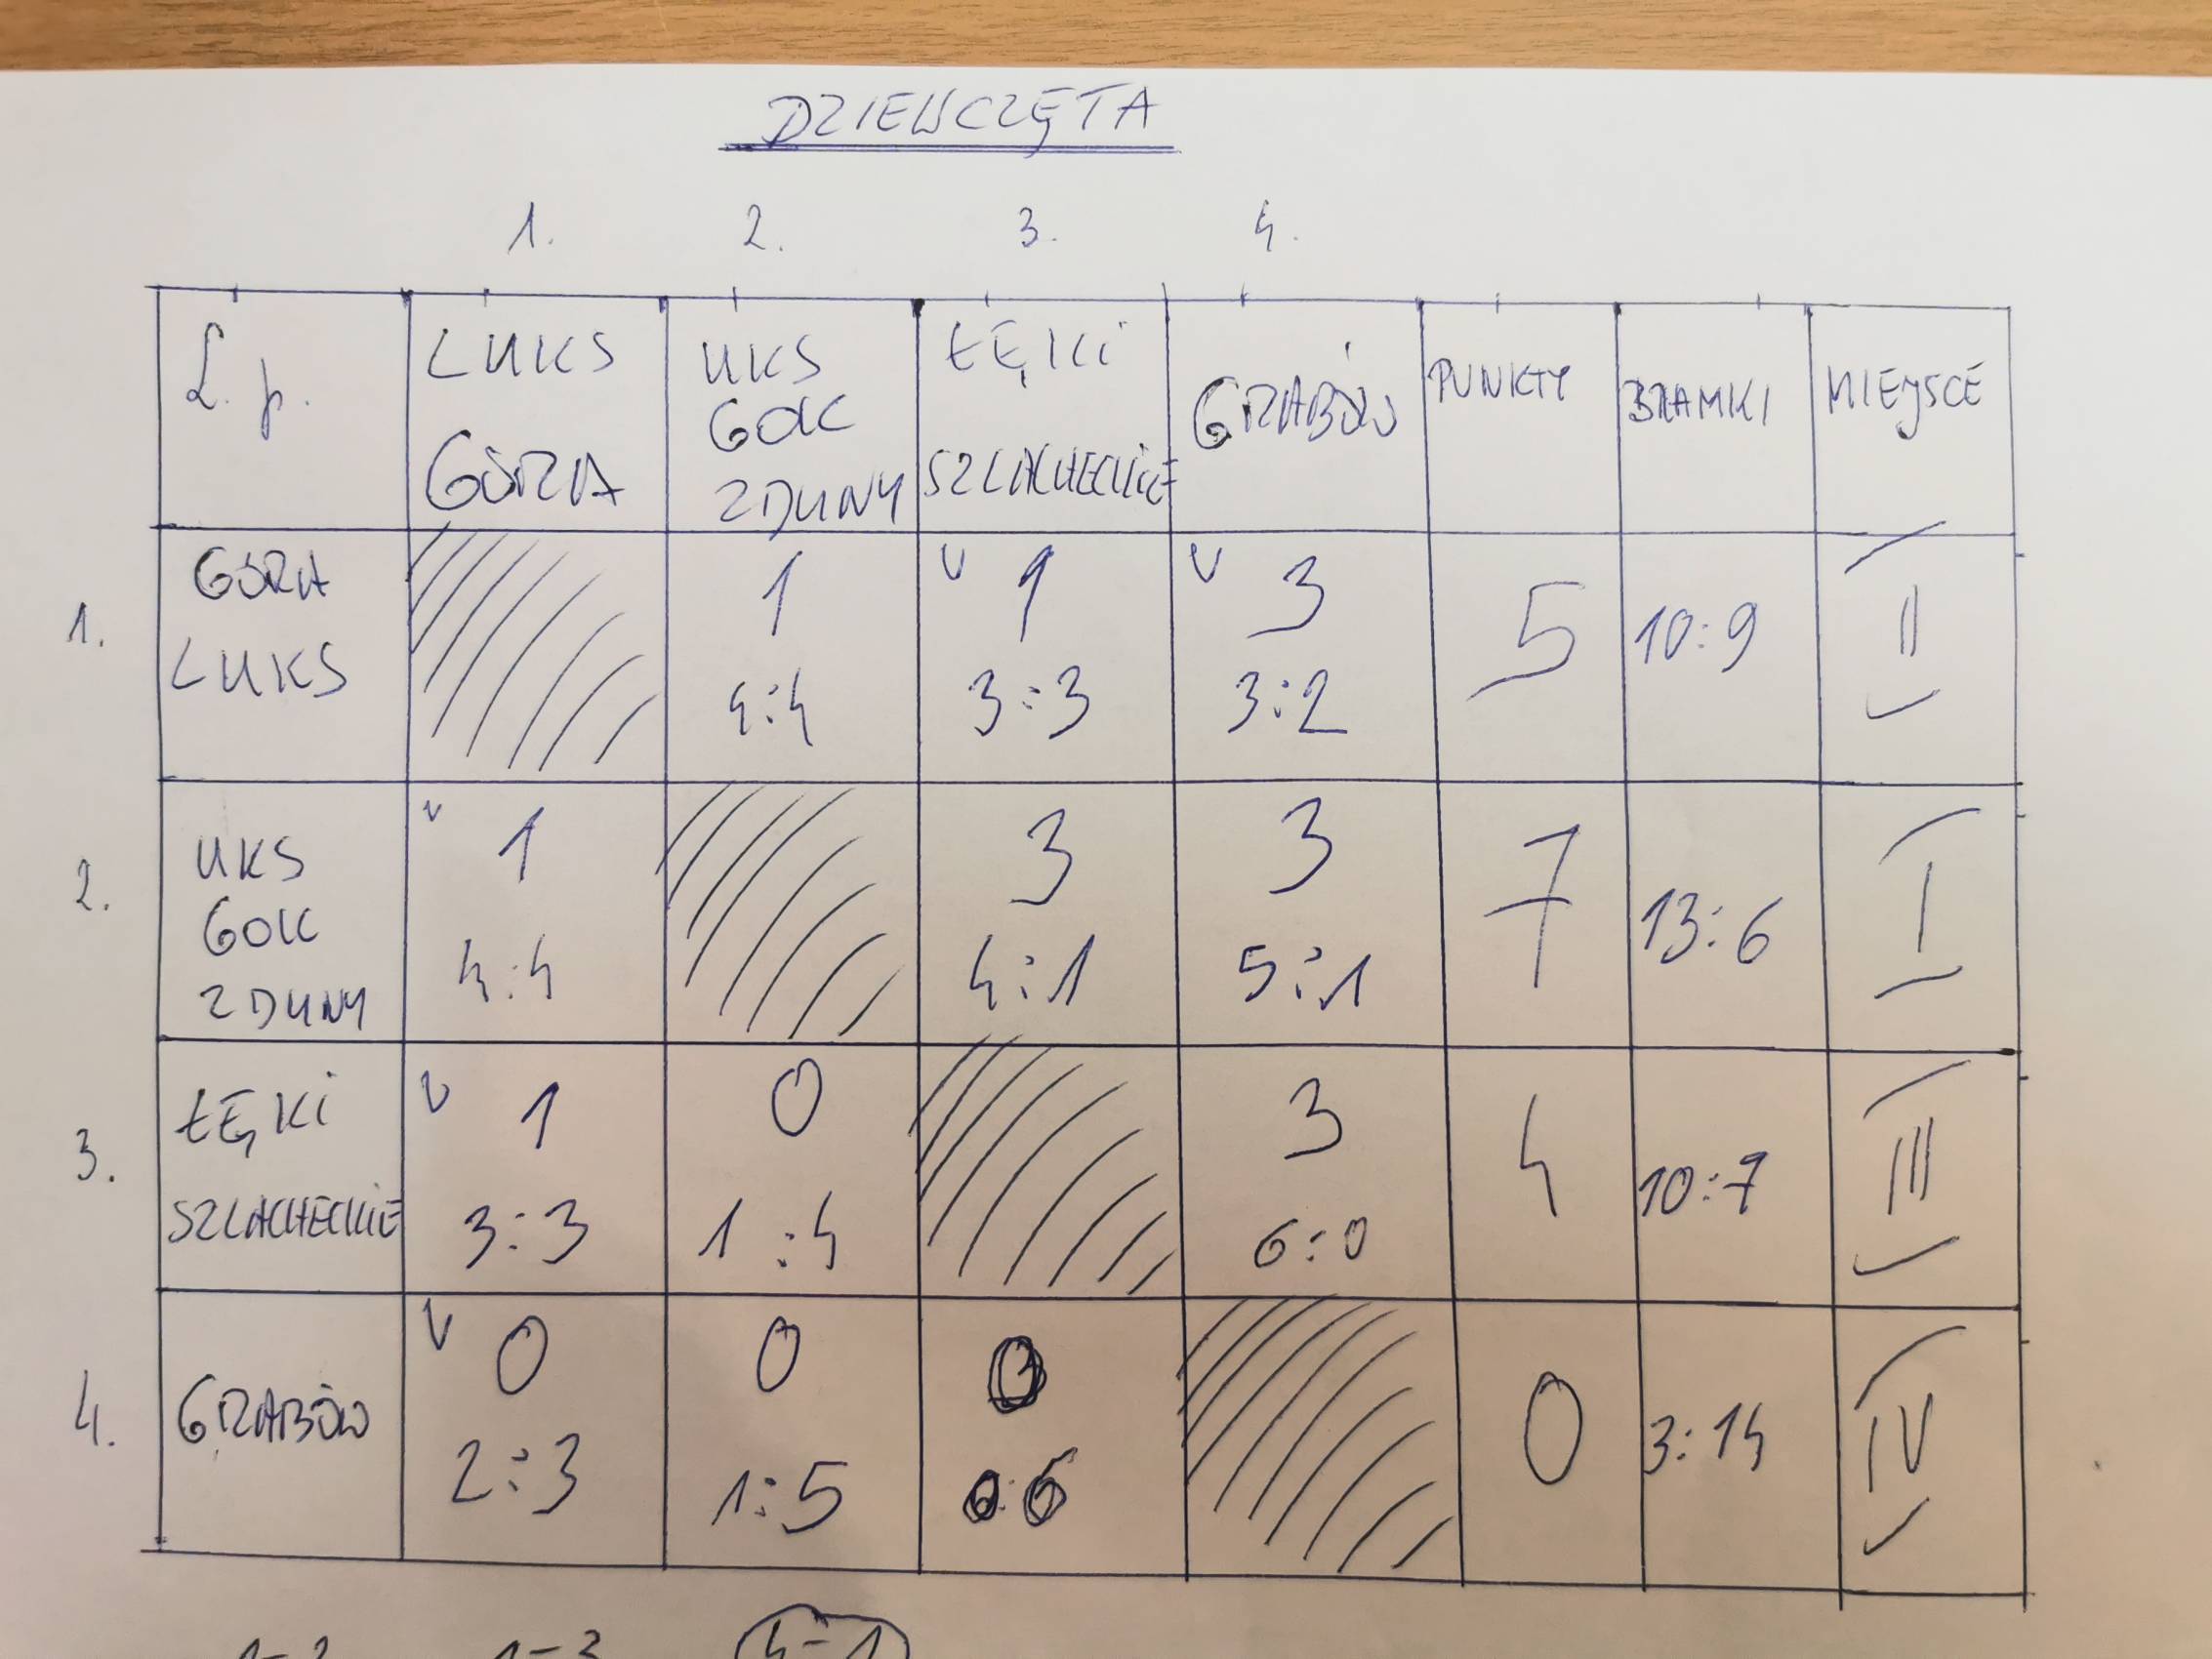 DZIEWCZĘTA
1. 2. 3. 4.
L.p. LUKS GÓRA UKS GOK ZDUNY ŁĘKI SZLACHECKIE GRABÓW PUNKTY BRAMKI MIEJSCE
1. GÓRA LUKS 1 4:4 1 3:3 3 3:2 5 10:9 II
2. UKS GOK ZDUNY 1 4:4 3 4:1 3 5:1 7 13:6 I
3. ŁĘKI SZLACHECKIE 1 3:3 0 1:4 3 6:0 4 10:7 III
4. GRABÓW 0 2:3 0 1:5 0 0:6 0 3:14 IV
4-1